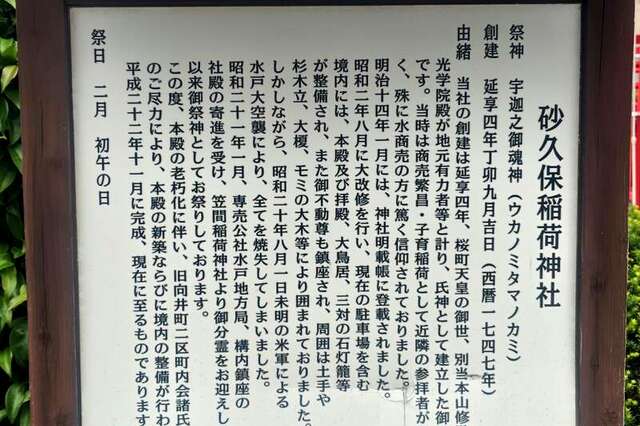 砂久保稲荷神社
祭神　宇迦之御魂神（ウカノミタマノカミ）
創建　延享四年丁卯九月吉日（西暦一七四七年）
由緒　当社の創建は延享四年、桜町天皇の御世、別当本山修
光学院殿が地元有力者等と計り、氏神として建立した御
です。当時は商売繁昌・子育稲荷として近隣の参拝者が
く、殊に水商売の方に篤く信仰されておりました。
明治十四年一月には、神社明載帳に登載されました。
昭和二年八月に大改修を行い、現在の駐車場を含む
境内には、本殿及び拝殿、大鳥居、三対の石灯籠等
が整備され、また御不動尊も鎮座され、周囲は土手や
杉木立、大榎、モミの大木等により囲まれておりました。
しかしながら、昭和二十年八月一日未明の米軍による
水戸大空襲により、全てを焼失してしまいました。
昭和二十一年一月、専売公社水戸地方局、構内鎮座の
社殿の寄進を受け、笠間稲荷神社より御分霊をお迎えし
以来御祭神としてお祭りしております。
この度、本殿の老朽化に伴い、旧向井町二区町内会諸氏
のご尽力により、本殿の新築ならびに境内の整備が行わ
平成二十二年十一月に完成、現在に至るものであります
祭日　二月　初午の日